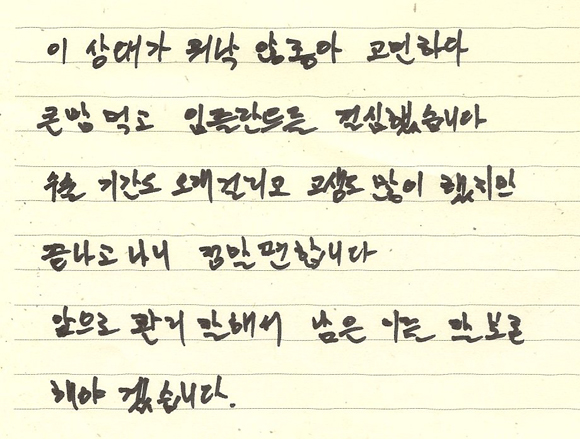 이 상태가 워낙 않좋아 고민하다
큰맘 먹고 임플란트를 결심했습니다
수술 기간도 오래걸리고 고생도 많이 했지만
끝나고 나니 정말 편합니다
앞으로 관리 잘해서 남은 이는 잘 보존
해야 겠습니다.